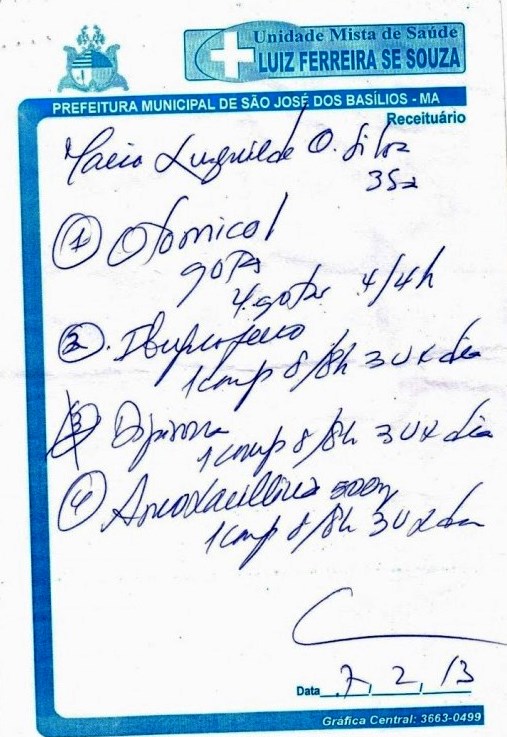 Unidade Mista de Saúde
LUIZ FERREIRA SE SOUZA
PREFEITURA MUNICIPAL DE SÃO JOSÉ DOS BASÍLIOS - MA
Receituário
O. Silva
35a
① Otomical
gotas
4 gotas 4/4h
② Ibuprofeno
1 comp 8/8h 3 vx dia
③ Dipirona
1 comp 8/8h 3 vx dia
④ Amoxacillina 500m
1 comp 8/8h 3 vx dia
Data 7, 2, 13
Gráfica Central: 3663-0499